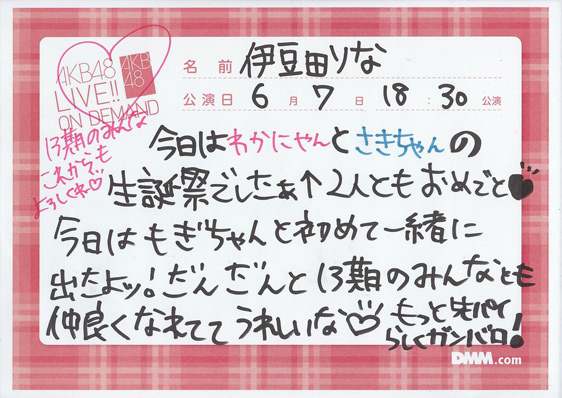 AKB48
LIVE!!
ON DEMAND
AKB
48
名前 伊豆田りな
公演日 6月7日 18:30公演
13期のみんな
これからも
よろしくね♡
今日はわかにゃんとさきちゃんの
生誕祭でしたぁ↑2人ともおめでと♥
今日はもぎちゃんと初めて一緒に
出たよッ!だんだんと13期のみんなとも
仲良くなれてて うれしいな♡
もっと先パイ
らしくガンバロ!
DMM.com